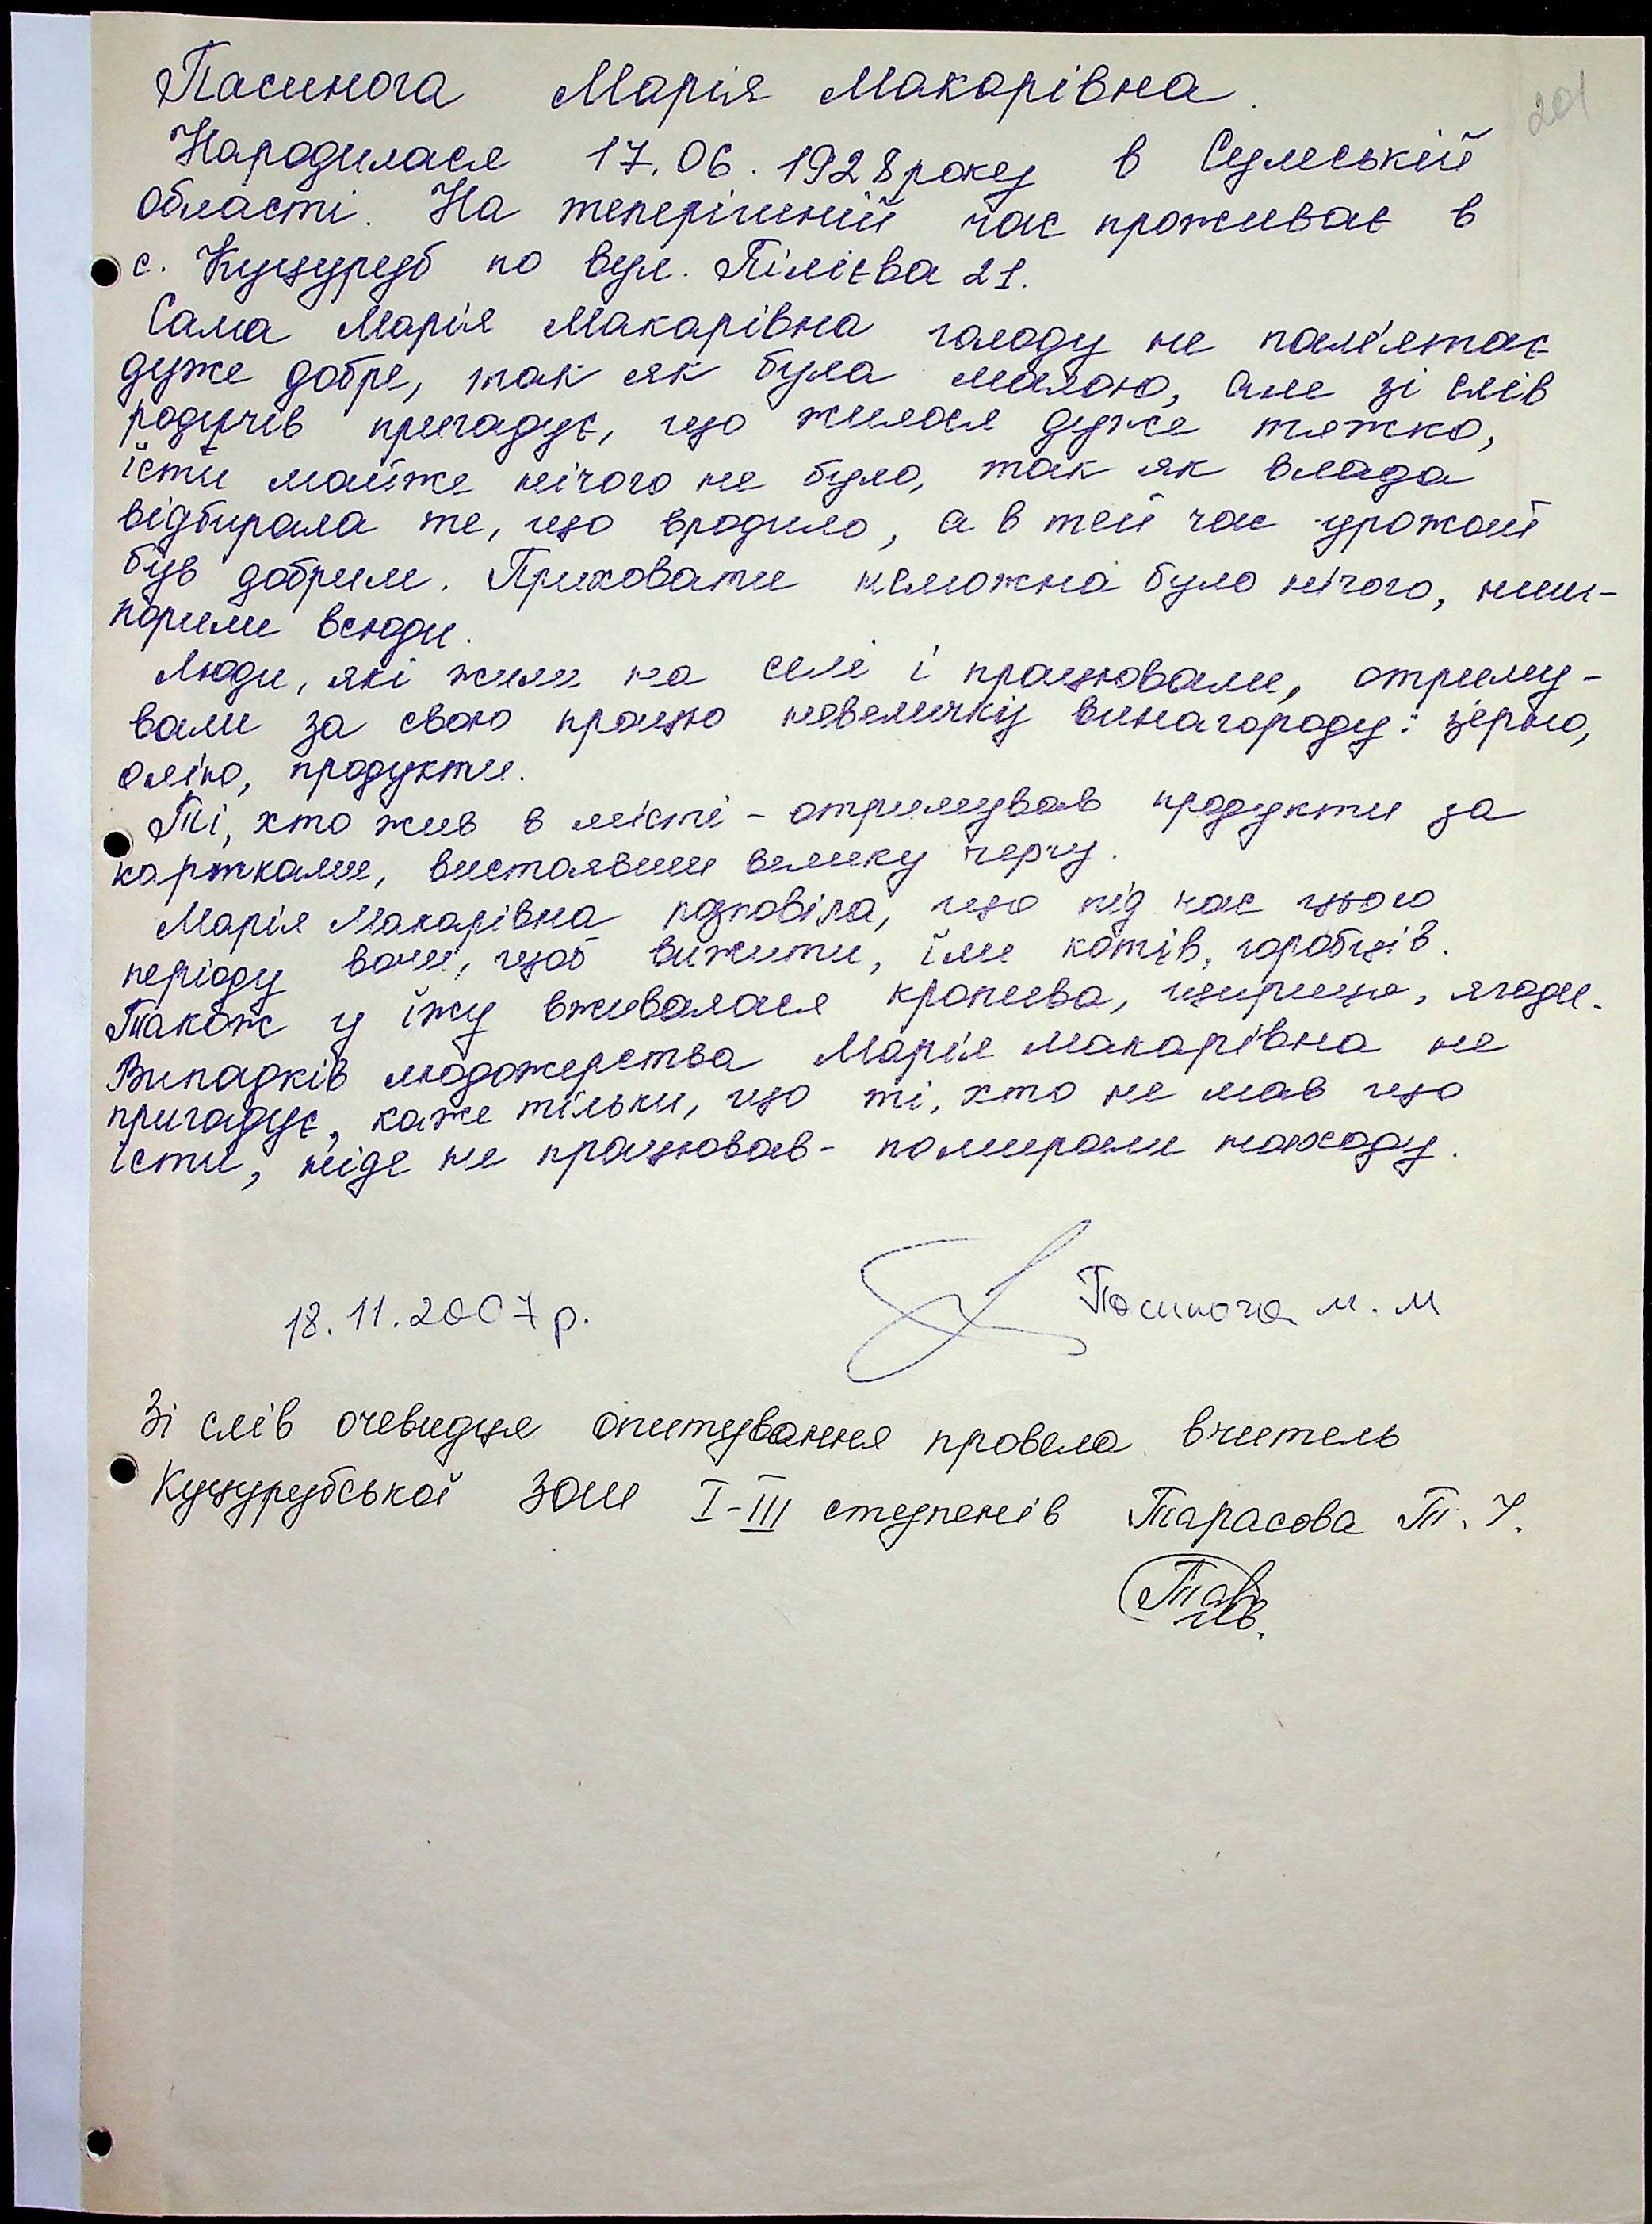 201
Пасинога Марія Макарівна.
Народилася 17.06.1928 року в Сумській
області. На теперішній час проживає в
с. Куцуруб по вул. Пілієва 21.
Сама Марія Макарівна голоду не пам'ятає
дуже добре, так як була малою, але зі слів
родичів пригадує, що жилося дуже тяжко,
їсти майже нічого не було, так як влада
відбирала те, що вродило, а в той час урожай
був добрим. Приховати неможна було нічого, ниш-
порили всюди.
Люди, які жили на селі і працювали, отриму-
вали за свою працю невеличку винагороду: зерно,
олію, продукти.
Ті, хто жив в місті - отримував продукти за
картками, вистоявши велику чергу.
Марія Макарівна розповіла, що під час цього
періоду вони, щоб вижити, їли котів, горобців.
Також у їжу вживалася кропива, щириця, ягоди.
Випадків людожерства Марія Макарівна не
пригадує, каже тільки, що ті, хто не мав що
їсти, ніде не працював - помирали находу.
18.11.2007 р.
Пасинога М. М
Зі слів очевидця опитування провела вчитель
Куцурубської ЗОШ I-III ступенів Тарасова Т. І.